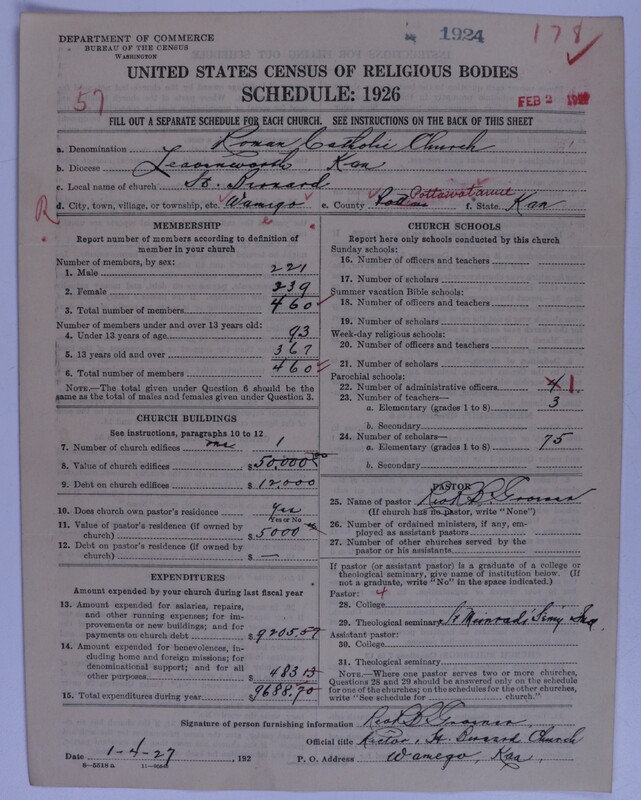 DEPARTMENT OF COMMERCE
BUREAU OF THE CENSUS
WASHINGTON
1924
178
57
UNITED STATES CENSUS OF RELIGIOUS BODIES
SCHEDULE: 1926
FEB 3
FILL OUT A SEPARATE SCHEDULE FOR EACH CHURCH. SEE INSTRUCTIONS ON THE BACK OF THIS SHEET
a. Denomination Roman Catholic Church
b. Diocese Leavenworth Kan
c. Local name of church St. Bernard
d. City, town, village, or township, etc. Wamego e. County Pott Pottawatomie f. State Kan
R
MEMBERSHIP
Report number of members according to definition of
member in your church
Number of members, by sex:
1. Male 221
2. Female 239
3. Total number of members 460
Number of members under and over 13 years old:
4. Under 13 years of age 93
5. 13 years old and over 367
6. Total number of members 460
NOTE.—The total given under Question 6 should be
same as the total of males and females given under Question 3.
CHURCH BUILDINGS
See instructions, paragraphs 10 to 12
7. Number of church edifices one 1
8. Value of church edifices $50,000
9. Debt on church edifices $12000
10. Does church own pastor's residence Yes
Yes or No
11. Value of pastor's residence (if owned by
church) $5000
12. Debt on pastor's residence (if owned by
church) $ —
EXPENDITURES
Amount expended by your church during last fiscal year
13. Amount expended for salaries, repairs,
and other running expenses; for im-
provements or new buildings; and for
payments on church debt $9205.57
14. Amount expended for benevolences, in-
cluding home and foreign missions; for
denominational support; and for all
other purposes $483 13
15. Total expenditures during year $9688.70
CHURCH SCHOOLS
Report here only schools conducted by this church
Sunday schools:
16. Number of officers and teachers
17. Number of scholars
Summer vacation Bible schools:
18. Number of officers and teachers
19. Number of scholars
Week-day religious schools:
20. Number of officers and teachers
21. Number of scholars
Parochial schools:
22. Number of administrative officers 4 1
23. Number of teachers—
a. Elementary (grades 1 to 8) 3
b. Secondary
24. Number of scholars—
a. Elementary (grades 1 to 8) 75
b. Secondary
PASTOR
25. Name of pastor
(If church has no pastor, write "None")
26. Number of ordained ministers, if any, em-
ployed as assistant pastors
27. Number of other churches served by the
pastor or his assistants
If pastor (or assistant pastor) is a graduate of a college or
theological seminary, give name of institution below. (If
not a graduate, write "No" in the space indicated.)
Pastor: 4
28. College
29. Theological seminary St Meinrad's Semy Ind
Assistant pastor:
30. College
31. Theological seminary
NOTE.—Where one pastor serves two or more churches,
Questions 28 and 29 should be answered only on the schedule
for one of the churches; on the schedules for the other churches,
write "See schedule for church."
Signature of person furnishing information
Official title Rector, St. Bernard Church
Date 1-4-27, 192
P. O. Address Wamego, Kan.